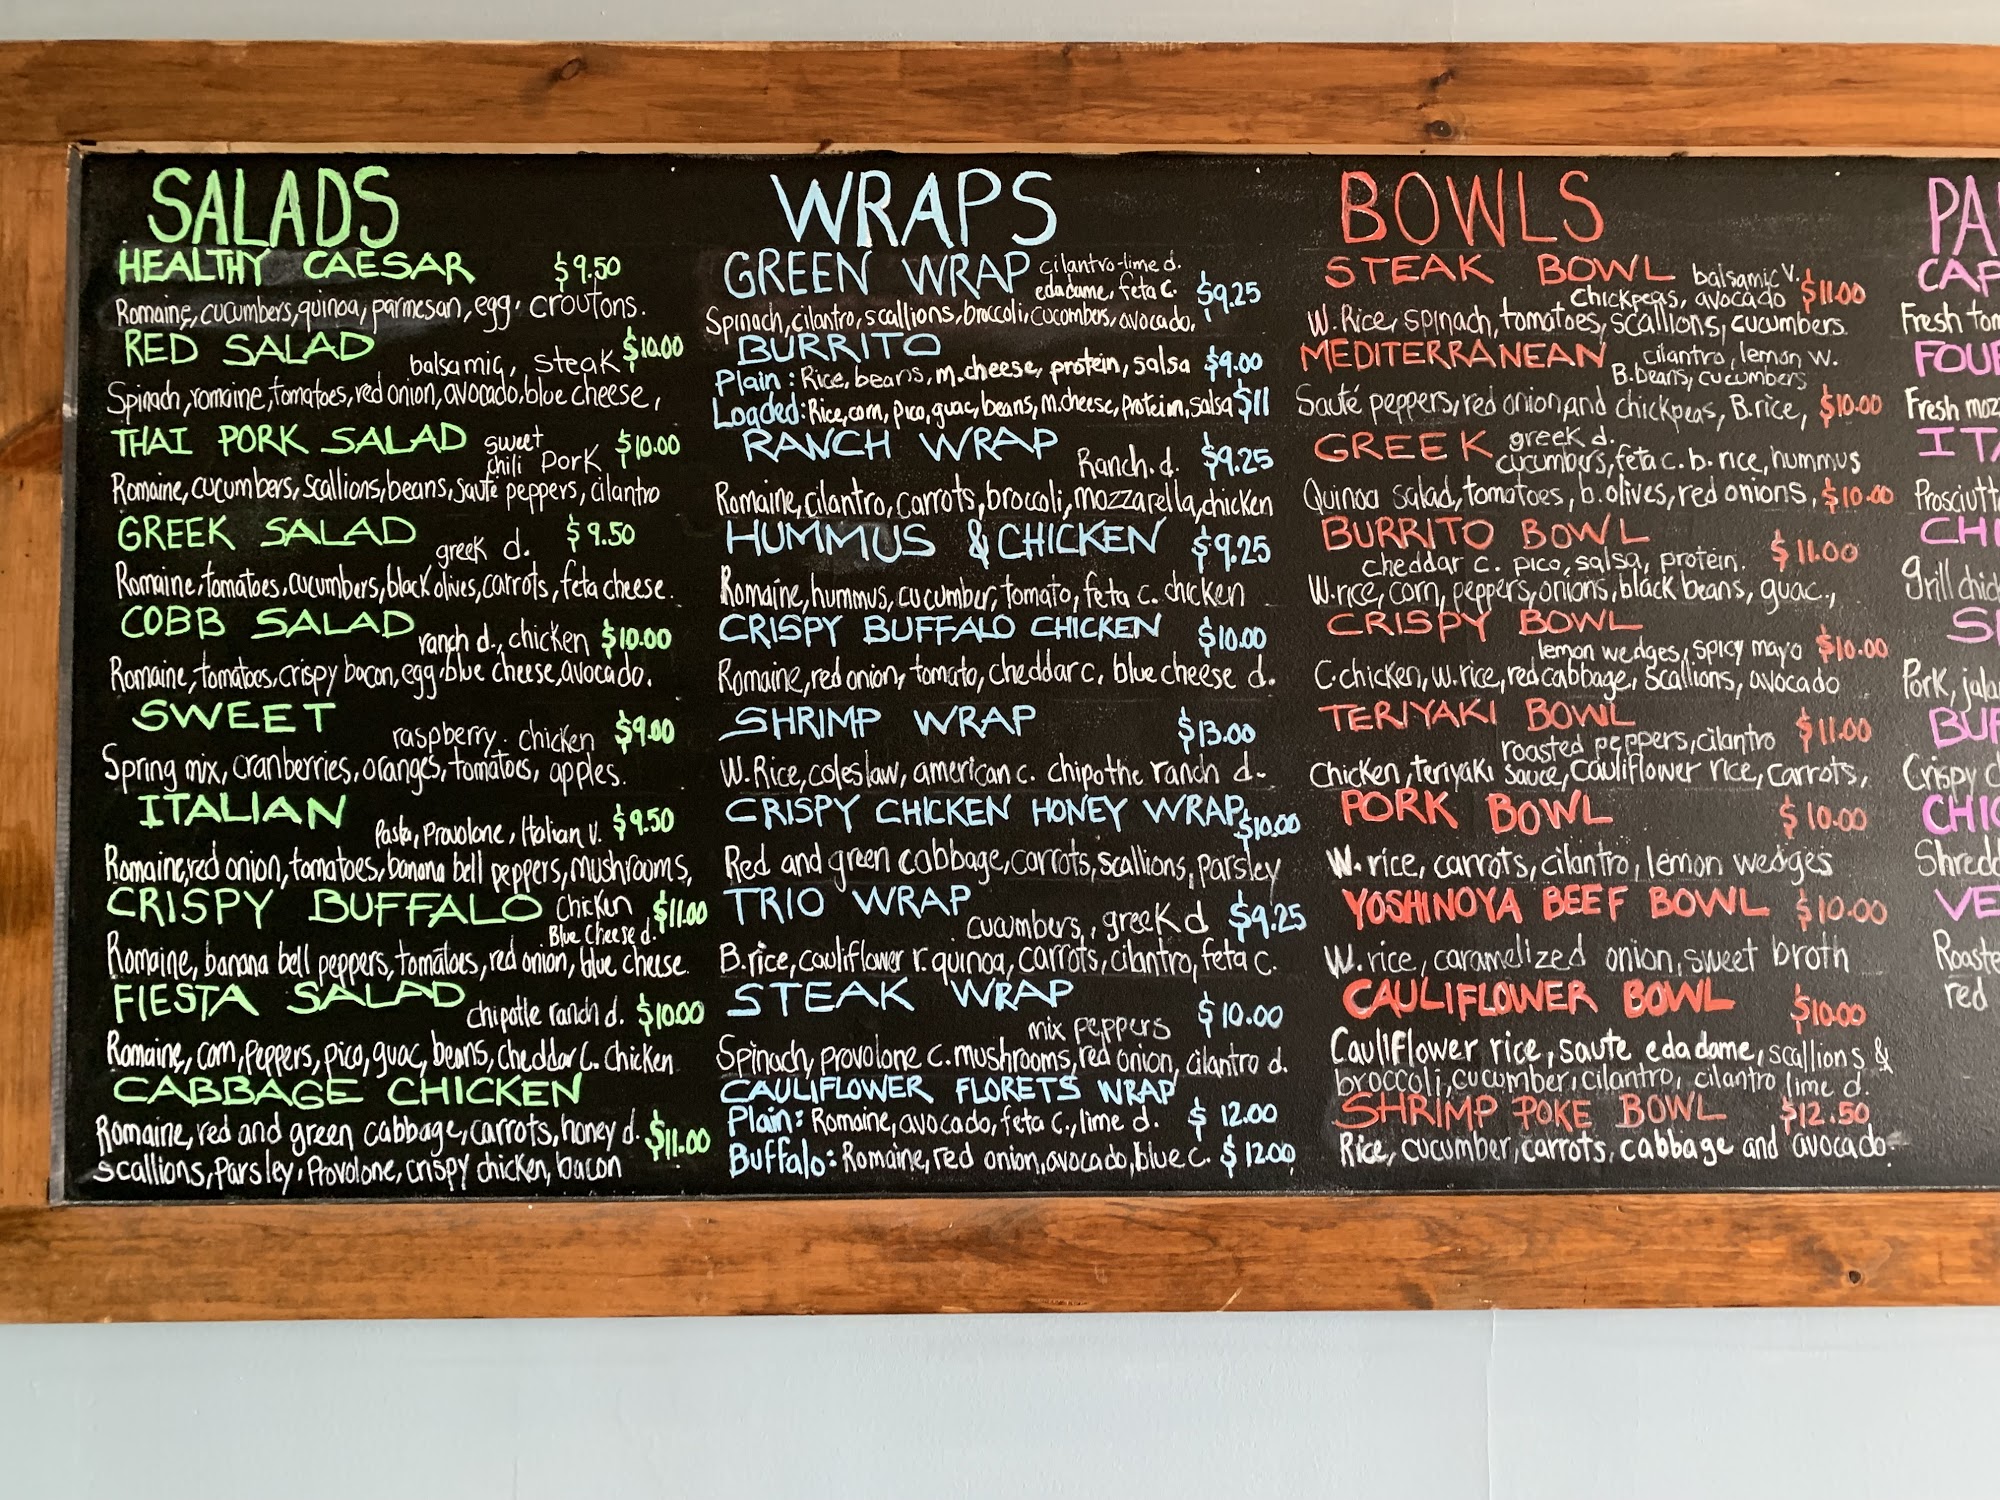 SALADS
HEALTHY CAESAR $9.50
Romaine, cucumbers, quinoa, parmesan, egg, croutons.
RED SALAD balsamic, steak $10.00
Spinach, romaine, tomatoes, red onion, avocado, blue cheese,
THAI PORK SALAD sweet chili pork $10.00
Romaine, cucumbers, scallions, beans, sauté peppers, cilantro
GREEK SALAD greek d. $9.50
Romaine, tomatoes, cucumbers, black olives, carrots, feta cheese.
COBB SALAD ranch d., chicken $10.00
Romaine, tomatoes, crispy bacon, egg, blue cheese, avocado.
SWEET raspberry. chicken $9.00
Spring mix, cranberries, oranges, tomatoes, apples.
ITALIAN Pasta, Provolone, Italian v. $9.50
Romaine, red onion, tomatoes, banana bell peppers, mushrooms,
CRISPY BUFFALO Chicken $11.00
Blue Cheese d.
Romaine, banana bell peppers, tomatoes, red onion, blue cheese.
FIESTA SALAD chipotle ranch d. $10.00
Romaine, corn, peppers, pico, guac, beans, cheddar c. chicken
CABBAGE CHICKEN
Romaine, red and green cabbage, carrots, honey d. $11.00
scallions, Parsley, Provolone, crispy chicken, bacon
WRAPS
GREEN WRAP cilantro-lime d.
edadame, feta c. $9.25
Spinach, cilantro, scallions, broccoli, cucombers, avocado.
BURRITO
Plain: Rice, beans, m.cheese, protein, salsa $9.00
Loaded: Rice, corn, pico, guac, beans, m.cheese, protein, salsa $11
RANCH WRAP Ranch. d. $9.25
Romaine, cilantro, carrots, broccoli, mozzarella, chicken
HUMMUS & CHICKEN $9.25
Romaine, hummus, cucumber, tomato, feta c. chicken
CRISPY BUFFALO CHICKEN $10.00
Romaine, red onion, tomato, cheddar c, blue cheese d.
SHRIMP WRAP $13.00
W.Rice, coleslaw, american c. chipothe ranch d.
CRISPY CHICKEN HONEY WRAP $10.00
Red and green cabbage, carrots, scallions, parsley
TRIO WRAP cucumbers, greek d $9.25
B.rice, cauliflower r. quinoa, carrots, cilantro, feta c.
STEAK WRAP mix peppers $10.00
Spinach, provolone c. mushrooms, red onion, cilantro d.
CAULIFLOWER FLORETS WRAP
Plain: Romaine, avocado, feta c., lime d. $12.00
Buffalo: Romaine, red onion, avocado, blue c. $12.00
BOWLS
STEAK BOWL balsamic v.
chickpeas, avocado $11.00
W.Rice, spinach, tomatoes, scallions, cucumbers.
MEDITERRANEAN cilantro, lemon w.
B.beans, cucumbers
Sauté peppers, red onion, and chickpeas, B.rice, $10.00
GREEK greek d.
cucumbers, feta c. b. rice, hummus
Quinoa salad, tomatoes, b.olives, red onions, $10.00
BURRITO BOWL $11.00
cheddar c. pico, salsa, protein.
W.rice, corn, peppers, onions, black beans, guac.,
CRISPY BOWL
lemon wedges, spicy mayo $10.00
C.chicken, w.rice, red cabbage, scallions, avocado
TERIYAKI BOWL
roasted peppers, cilantro $11.00
Chicken, teriyaki sauce, cauliflower rice, carrots,
PORK BOWL $10.00
W. rice, carrots, cilantro, lemon wedges
YOSHINOYA BEEF BOWL $10.00
W. rice, caramelized onion, sweet broth
CAULIFLOWER BOWL $10.00
Cauliflower rice, saute edadame, scallions &
broccoli, cucumber, cilantro, cilantro lime d.
SHRIMP POKE BOWL $12.50
Rice, cucumber, carrots, cabbage and avocado.
PA
CAP
Fresh tom
FOU
Fresh moz
ITA
Prosciutt
CHI
Grill chic
S
Pork, jala
BUF
Crispy c
CHIC
Shredd
VE
Roaste
red